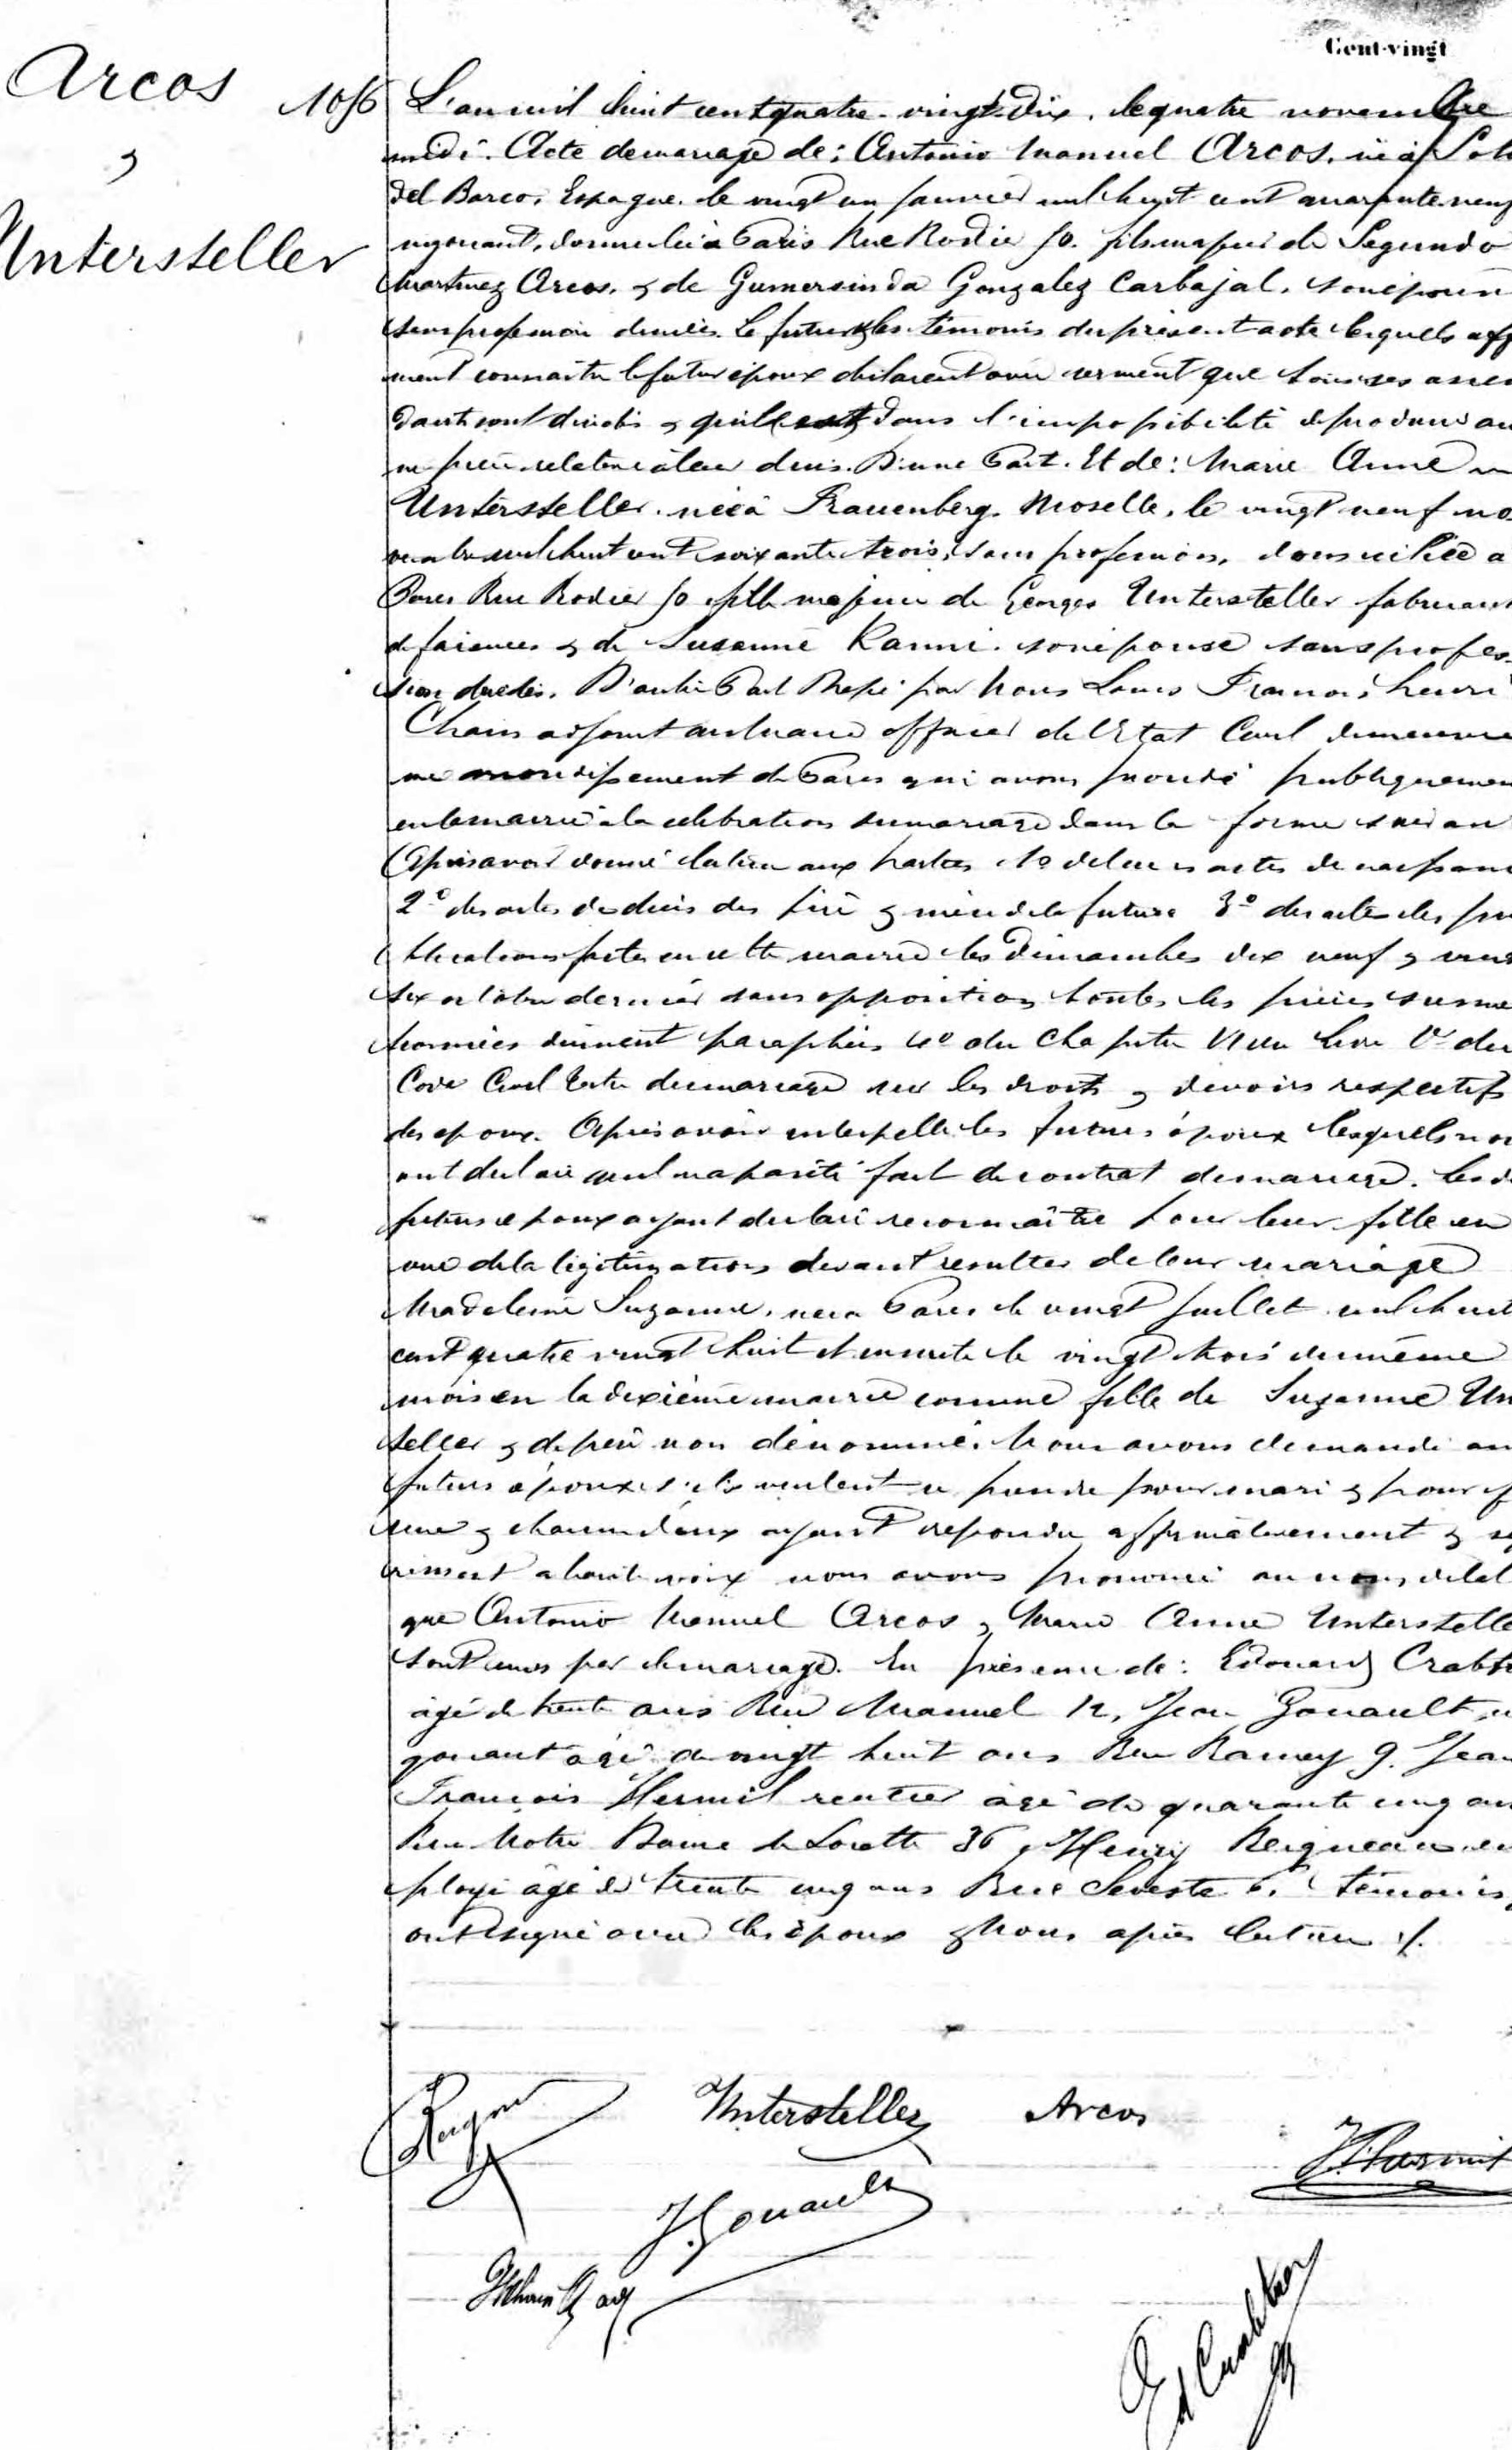 Cent-vingt
Arcos
&
Untersteller
1056
L'an mil huit cent quatre-vingt-dix, le quatre novembre
midi. Acte de mariage de: Antonio Manuel Arcos, né à Soto
del Barco, Espagne, le vingt un janvier mil huit cent quarante neuf
négociant, domicilié à Paris Rue Rodier 50. fils majeur de Segundo
Martinez Arcos, & de Gumersinda Gonzalez Carbajal, son épouse
sans profession décédés. Le futur & les témoins du présent acte lesquels aff
ment connaître le futur époux déclarent avec serment que tous ses ascen
dants sont décédés & qu'il est dans l'impossibilité de produire au
ne pièce relative à leur décès. D'une Part. Et de: Marie Anne
Untersteller, née à Frauenberg, Moselle, le vingt neuf no
vembre mil huit cent soixante trois, sans profession, domiciliée a
Paris Rue Rodier 50 fille majeure de Georges Untersteller fabricant
de faïences & de Susanne Kanni, son épouse sans profes-
sion décédés. D'autre Part Dressé par Nous Louis François Henri
Chain adjoint au Maire officier de l'Etat Civil du neuviè
me arrondissement de Paris qui avons procédé publiquemen
en la mairie à la célébration du mariage dans la forme suivan
Après avoir donné lecture aux parties 1º de leurs actes de naissance
2º des actes de décès des père & mère de la future 3º des actes des pu
blications faites en cette mairie les Dimanches dix neuf & vingt
six octobre dernier sans opposition, toutes les pièces susmen
tionnées dûment paraphées 4º du Chapitre VI du livre 1er du
Code Civil Titre du mariage sur les droits & devoirs respectifs
des époux. Après avoir interpellé les futurs époux lesquels nou
ont déclaré qu'il n'a pas été fait de contrat de mariage. Les d
futurs époux ayant déclaré reconnaître pour leur fille en
vue de la légitimation devant résulter de leur mariage
Madeleine Suzanne, née à Paris le vingt juillet mil huit
cent quatre vingt huit et inscrite le vingt trois du même
mois en la dixième mairie comme fille de Suzanne Un
teller & de père non dénommé. Nous avons demandé au
futurs époux s'ils veulent se prendre pour mari & pour f
me & chacun d'eux ayant répondu affirmativement & sé
rément à haute voix nous avons prononcé au nom de la l
que Antonio Manuel Arcos & Marie Anne Unterstelle
sont unis par le mariage. En présence de: Edouard Crabt
âgé de trente ans Rue Manuel 12, Jean Gouault, n
gociant âgé de vingt huit ans Rue Ramey 9. Jean
François Hermil rentier âgé de quarante cinq an
Rue Notre Dame de Lorette 36, Henry Reigneau em
ployé âgé de trente cinq ans Rue Seveste 6. témoins,
ont signé avec les époux & Nous après lecture ./.
Untersteller Arcos
J. Gouault